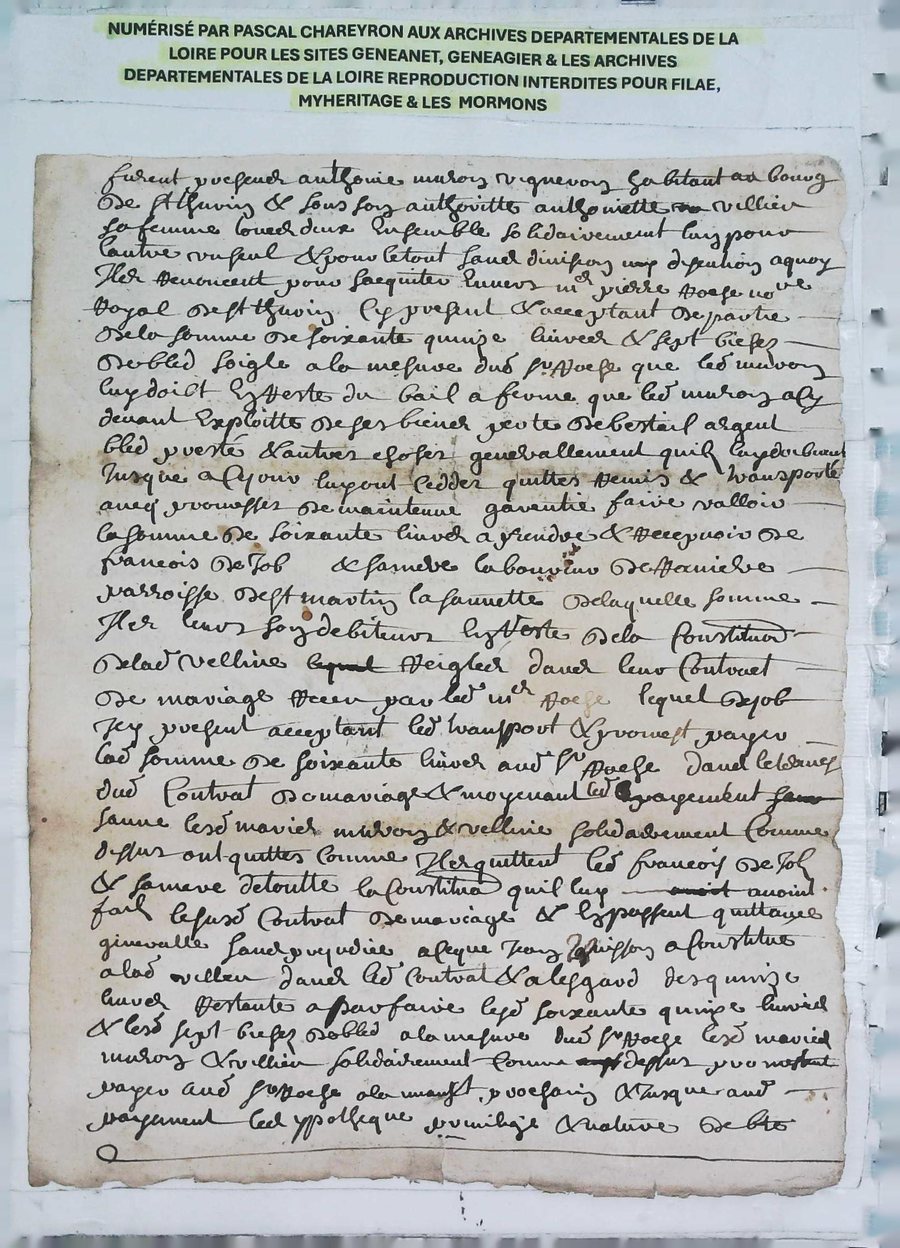 NUMÉRISÉ PAR PASCAL CHAREYRON AUX ARCHIVES DEPARTEMENTALES DE LA
LOIRE POUR LES SITES GENEANET, GENEAGIER & LES ARCHIVES
DEPARTEMENTALES DE LA LOIRE REPRODUCTION INTERDITES POUR FILAE,
MYHERITAGE & LES MORMONS
furent presens anthoine muron vigneron habitant au bourg
de st thurin & sous son authoritte anthoinette villien
sa femme ensemble solidairement lun pour
lautre un seul & pour le tout sans division ny discution a quoy
Ils renoncent pour sacquiter envers mre pierre no re
Royal de st thurin Cy present & acceptant de partie
de la somme de soixante quinze livres & sept
de bled seigle a la mesure dud sr que led muron
luy doibt En reste du bail a ferme que led muron a cy
devant Exploitte de ses biens perte de bestail argent
bled preste & autres choses generallement quil luy doibvent
Jusque a ce Jour luy ont cedder quittes remis & transporte
avecq promesses de maintenue garentie faire valloir
la somme de soixante livres a prendre & recepvoir de
francois de Job & sa mere laboureur de
parroisse de st martin la sannette de laquelle somme
Ils leurs son debiteurs En reste de la Constituon
de lad velline Reigles dans leur Contract
de mariage Receu par led mre lequel de job
Icy present acceptant led transport & promest payer
lad somme de soixante livres aud sr dans le termes
dud Contrat de mariage & moyenant led payement
led maries muron & velline solidairement Comme
dessus ont quittes comme Ils quittent led francois de Job
& sa mere de toutte la Constituon quil luy avoint
fait le susd Contrat de mariage & En passent quittance
generalle sans prejudice a ce que Jean a Constitue
a lad villien dans led Contrat & a lesgard des quinze
livres Restante a parfaire lesd soixante quinze livres
& lesd sept de bled a la mesure dud sr lesd maries
muron & villien solidairement Comme dessus promestent
payer aud sr a la prochain & Jusque aud
payement led ypotheque privilege & nature de